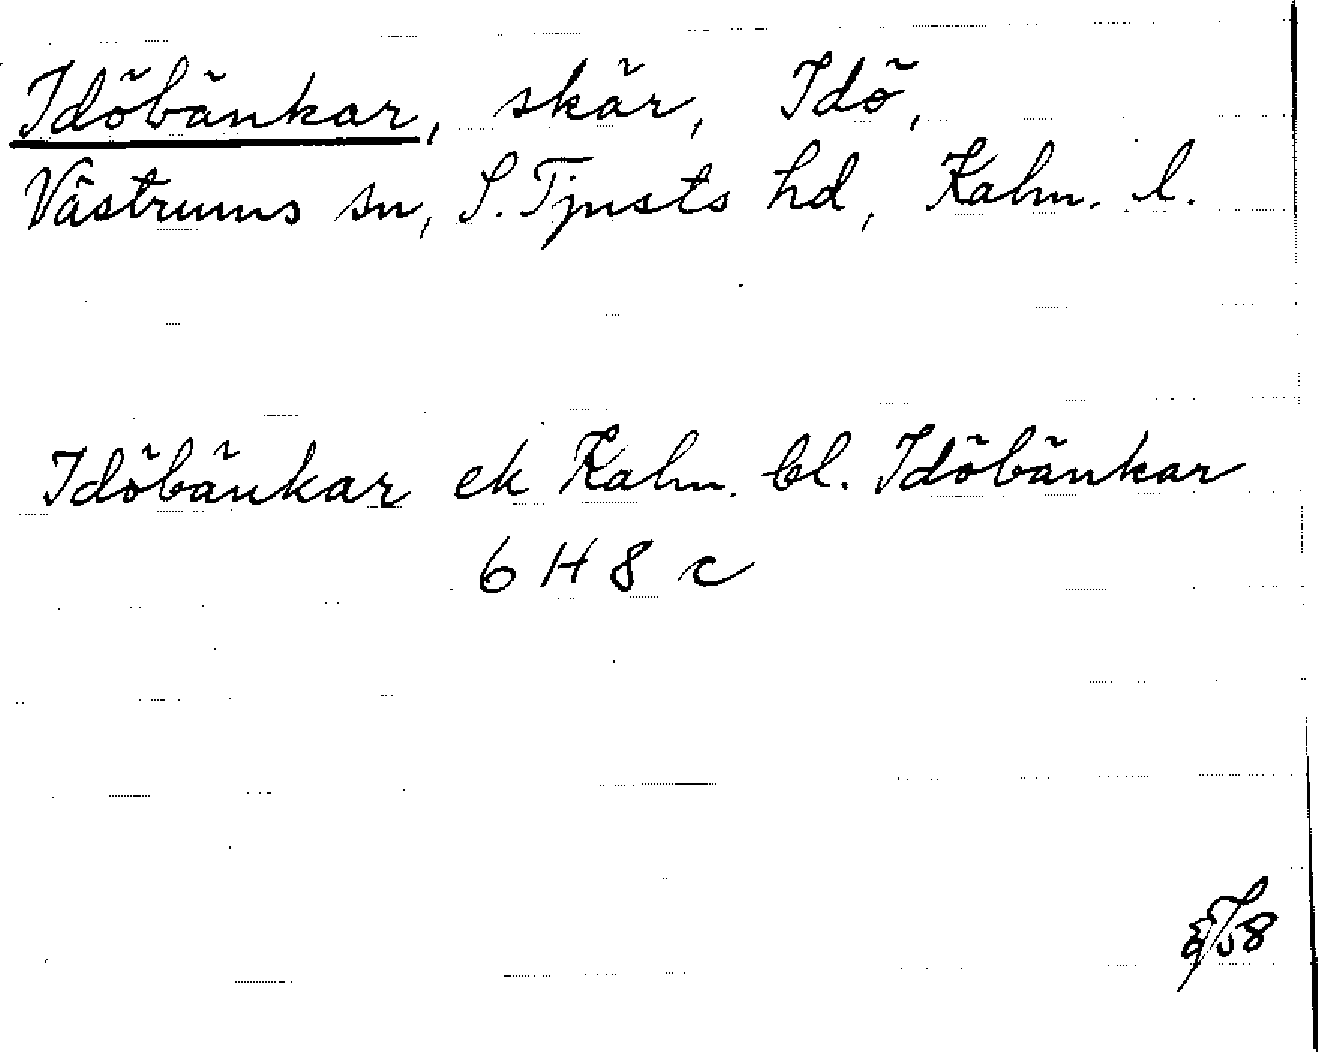 Idöbänkar, skär, Idö,
Västrums sn, S. Tjusts hd, Kalm. l.
Idöbänkar ek Kalm. bl. Idöbänkar
6 H 8 c